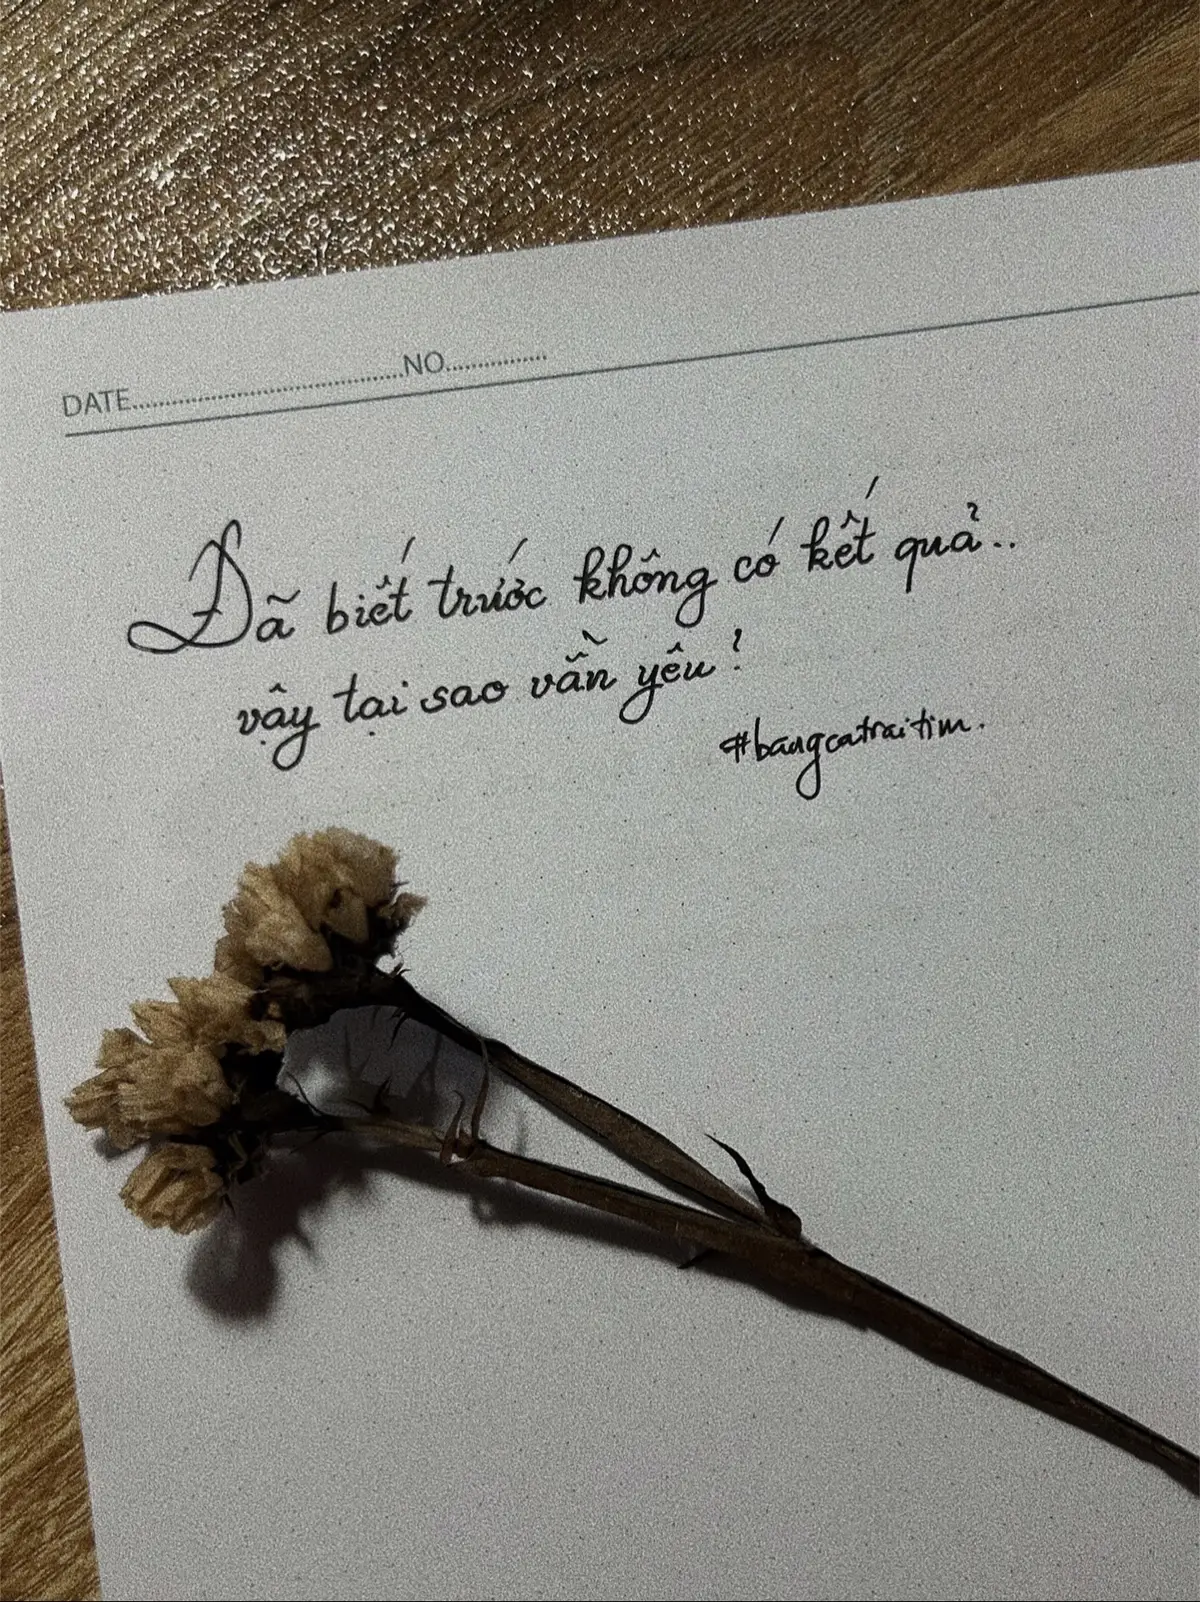 DATE..............................NO...............
Đã biết trước không có kết quả..
vậy tại sao vẫn yêu?
#bangcatraitim.